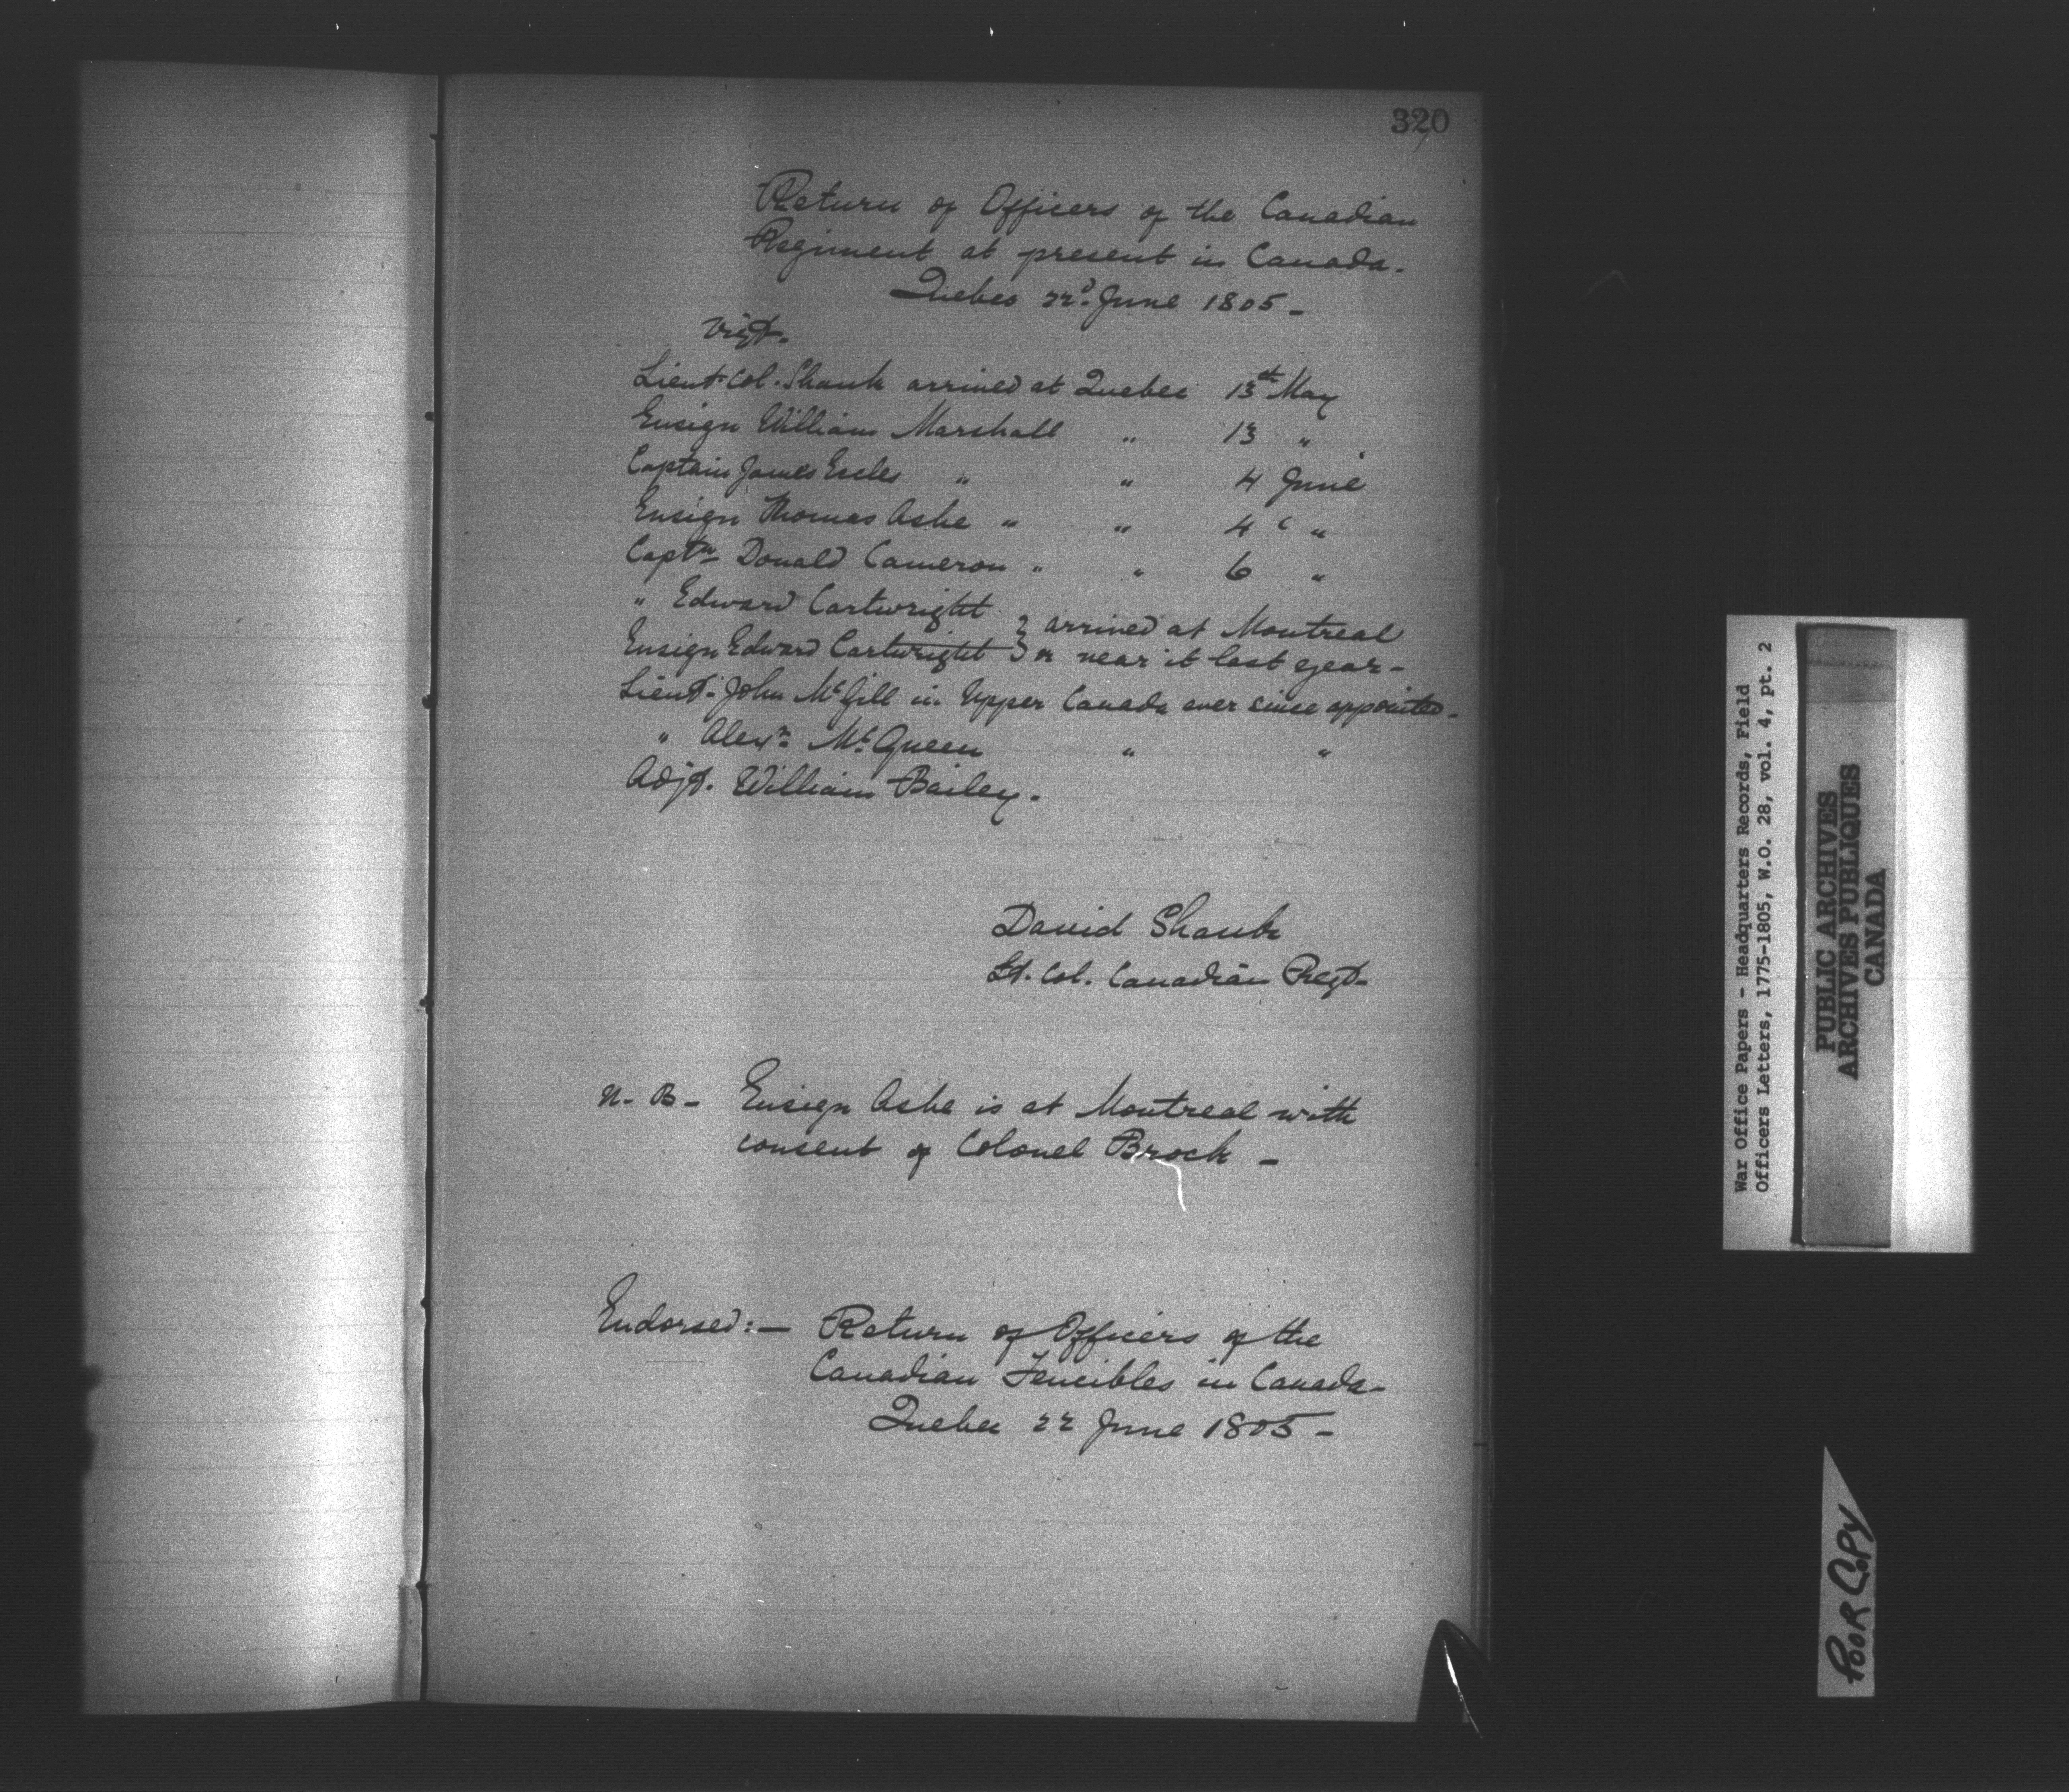 320
Return of Officers of the Canadian
Regiment at present in Canada.
Quebec 22d. June 1805 -
Vizt.
Lieut-Col. Shank arrived at Quebec 13th May
Ensign William Marshall " 13 "
Captain James Eccles " " 4 June
Ensign Thomas Ashe " " 4 "
Captn Donald Cameron " " 6 "
" Edward Cartwright } arrived at Montreal
Ensign Edward Cartwright } or near it last year -
Lieut. John McGill in Upper Canada ever since appointed -
" Alexr. McQueen " "
Adjt. William Bailey.
David Shank
Lt. Col. Canadian Regt.
N. B - Ensign Ashe is at Montreal with
consent of Colonel Brock -
Endorsed: - Return of Officers of the
Canadian Fencibles in Canada -
Quebec 22 June 1805 -
War Office Papers - Headquarters Records, Field
Officers Letters, 1775-1805, W.O. 28, vol. 4, pt. 2
PUBLIC ARCHIVES
ARCHIVES PUBLIQUES
CANADA
POOR COPY